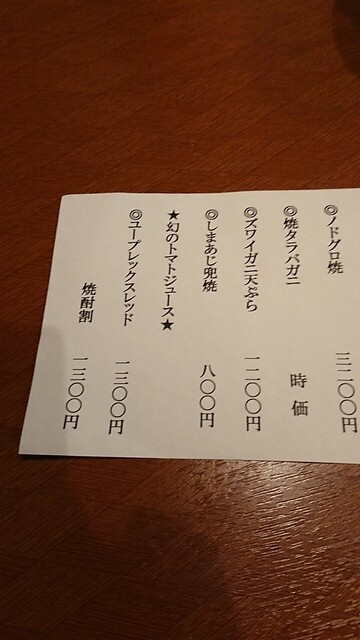 ◎ノドグロ焼 三二〇〇円
◎焼タラバガニ 時価
◎ズワイガニ天ぷら 一二〇〇円
◎しまあじ兜焼 八〇〇円
★幻のトマトジュース★
◎ユープレックスレッド 一二〇〇円
焼酎割 一三〇〇円